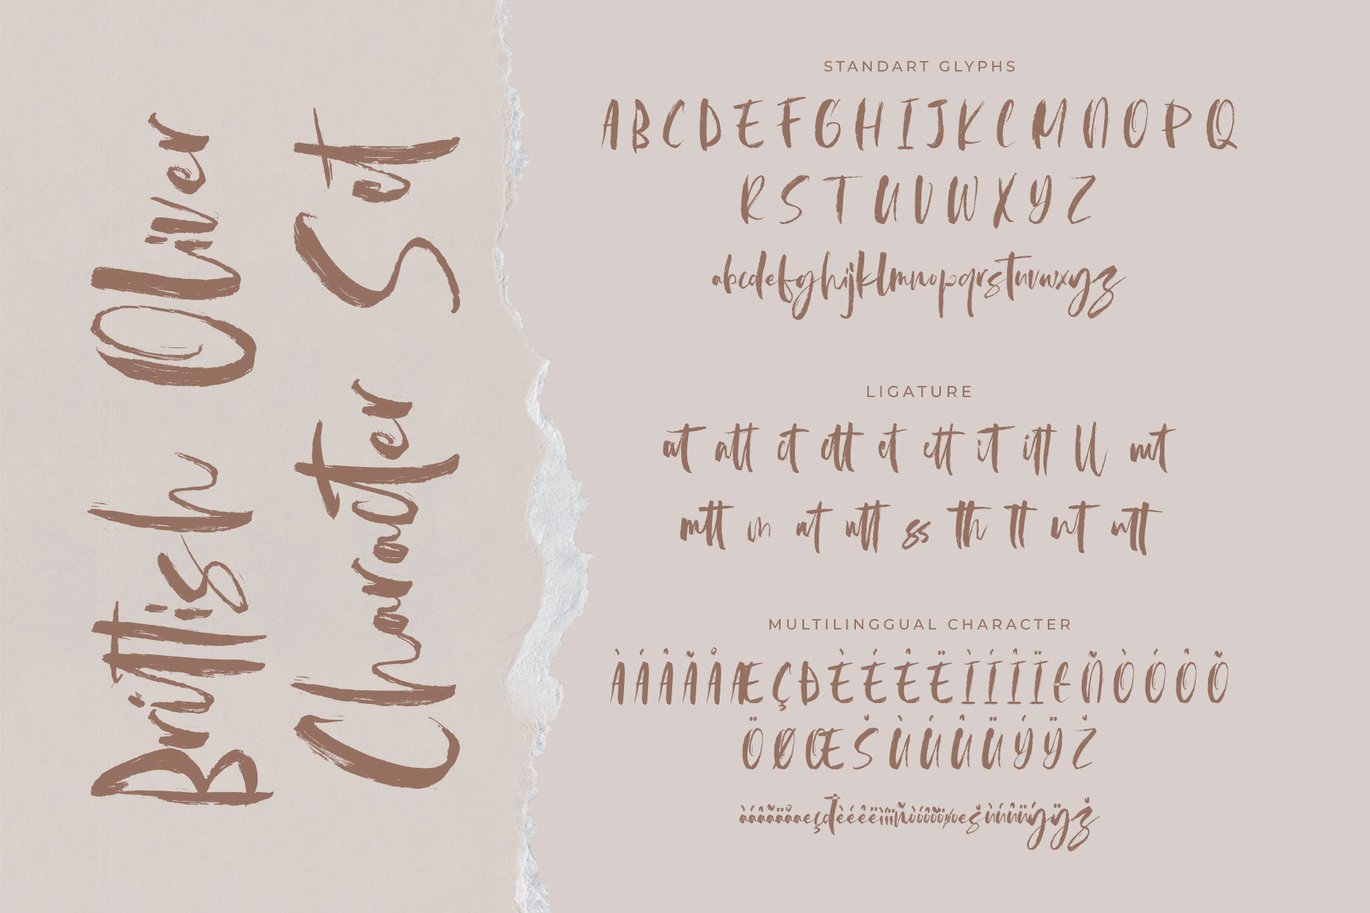 Brittish Oliver
Character Set
STANDART GLYPHS
A B C D E F G H I J K L M N O P Q
R S T U V W X Y Z
abcdefghijklmnopqrstuvwxyz
LIGATURE
at att ct ctt et ett it itt ll mt
mtt on ut utt ss th tt nt ntt
MULTILINGGUAL CHARACTER
À Á Â Ã Å Æ Ç Ð È É Ê Ë Ì Í Î Ï Ł Ñ Ò Ó Ô Õ
Ö Ø Œ Š Ù Ú Û Ü Ý Ÿ Ž